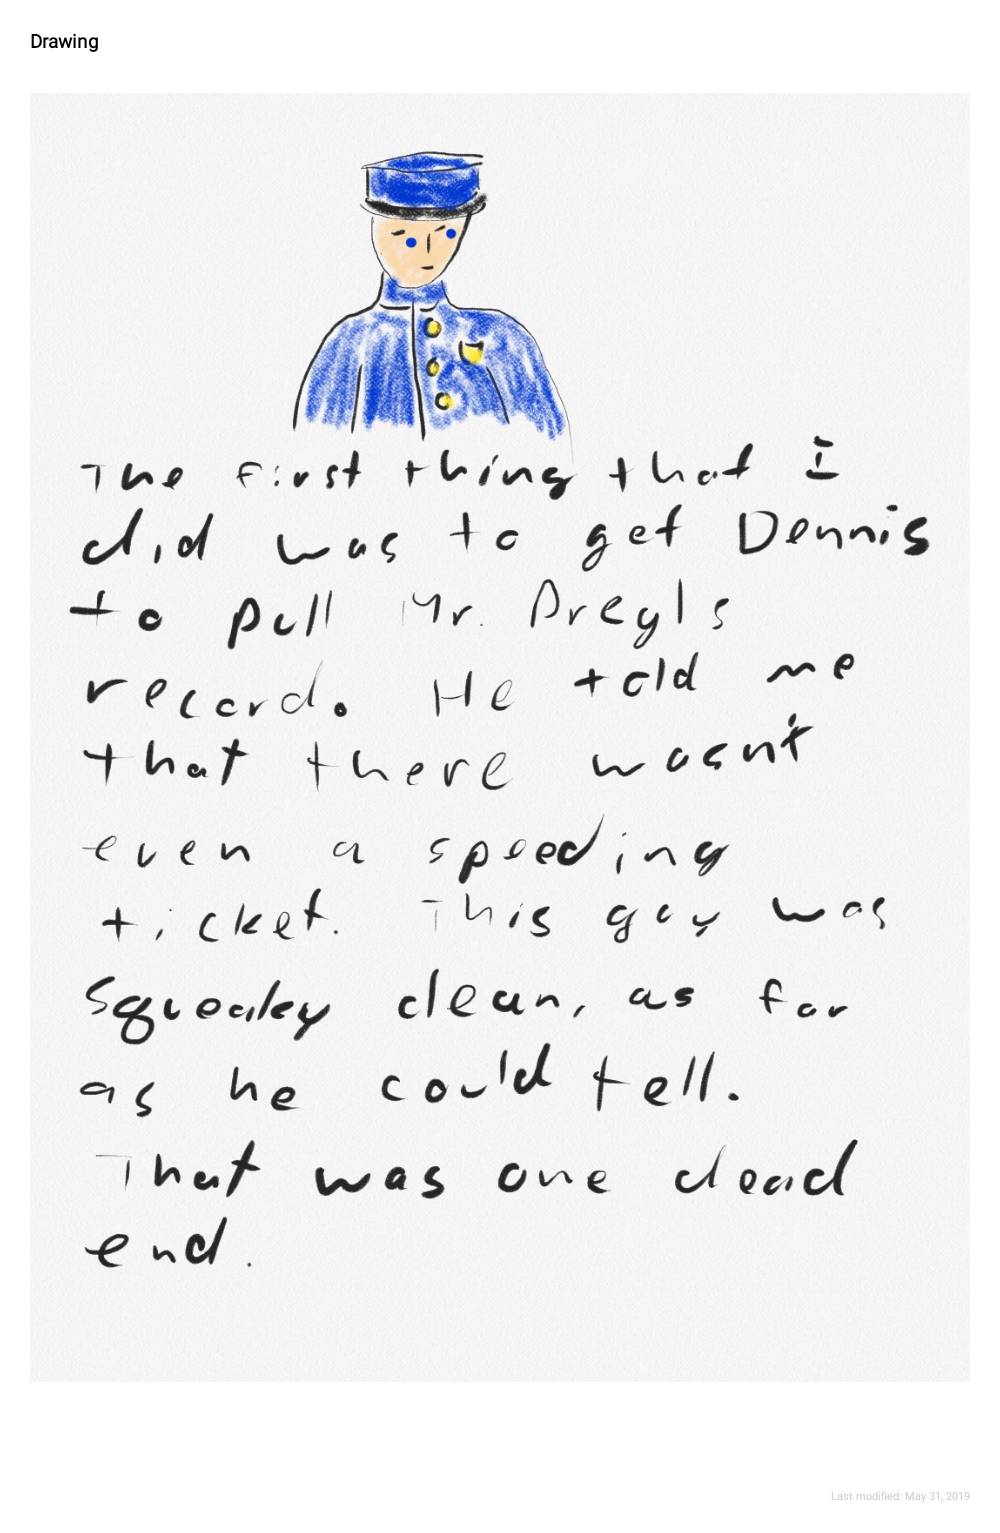 Drawing
The first thing that I
did was to get Dennis
to pull Mr. Dregls
record. He told me
that there wasn't
even a speeding
ticket. This guy was
squeaky clean, as far
as he could tell.
That was one dead
end.
Last modified: May 31, 2019